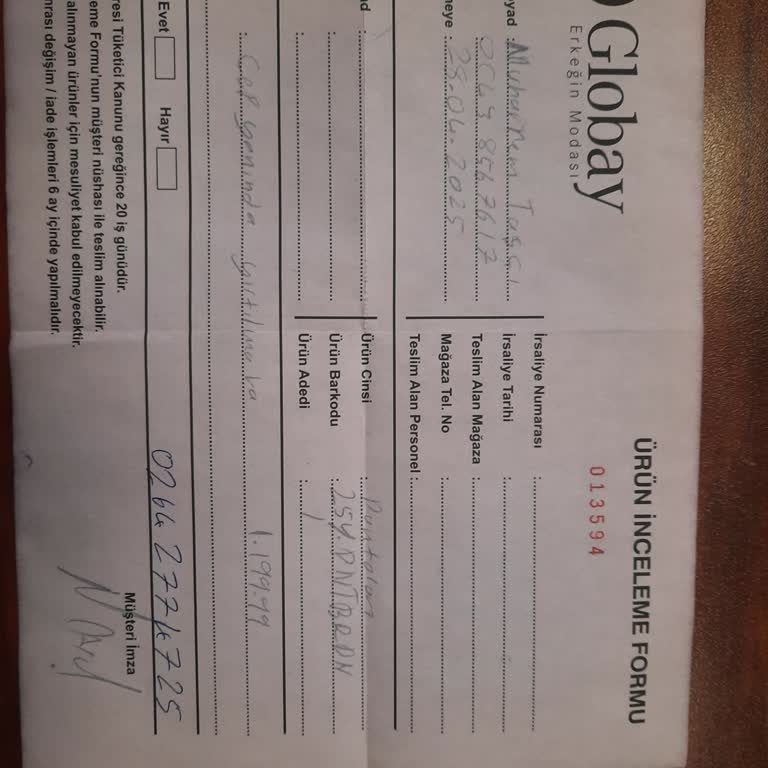 Globay
Erkeğin Modası
ÜRÜN İNCELEME FORMU
013594
yad : Muharrem Taşçı
İrsaliye Numarası :
0549 856 7617
İrsaliye Tarihi :
neye : 28.04.2025
Teslim Alan Mağaza :
Mağaza Tel. No :
Teslim Alan Personel :
Ürün Cinsi : Pantolon
Ürün Barkodu : 25Y.PNTBRDN
Ürün Adedi : 1
: Cep yanında yırtılma var 1.199.99
Evet Hayır
0264 277 47 25
resi Tüketici Kanunu gereğince 20 iş günüdür.
eme Formu'nun müşteri nüshası ile teslim alınabilir.
alınmayan ürünler için mesuliyet kabul edilmeyecektir.
nrası değişim / iade işlemleri 6 ay içinde yapılmalıdır.
Müşteri İmza